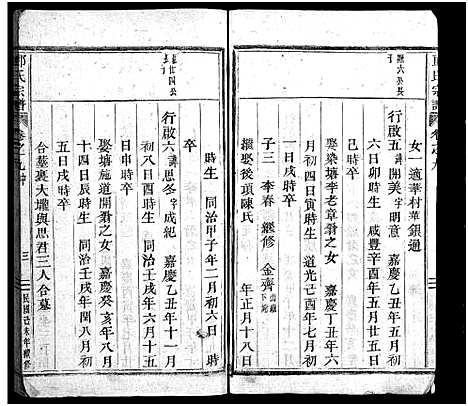 郎氏宗譜
卷之九
女一適華村華銀通
行啟五諱開美字明意 嘉慶乙丑年五月初
六日卯時生 咸豐辛酉年五月五日戌時
卒
娶染塘李老章翁之女 嘉慶丁丑年六
月初四日寅時生 道光己酉年七月初
一日戌時卒
子三 李春 繼修 金齊
繼娶後項陳氏 年正月十一
時生 同治甲子年二月初六日 時
卒
行啟六諱思冬字成紀 嘉慶乙丑年十一月
初八日酉時生 同治壬戌年六月十五
日申時卒
娶塘施道開翁之女 嘉慶癸亥年八月
十四日辰時生 同治壬戌年閏八月初
五日戌時卒
合墓裏大壠與思君三人合墓
郎氏宗譜
卷之九
三
民國己未年續修